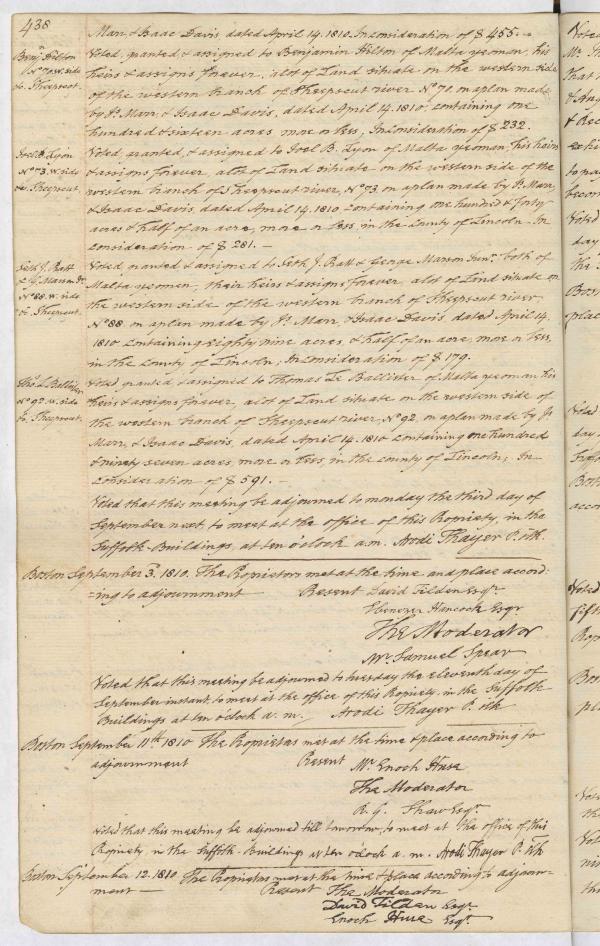 438
Marr, & Isaac Davis, dated April 14. 1810. In consideration of $455.
Benj.n Hilton
No 70. W. side
Sheepscot.
Voted, granted, & assigned to Benjamin Hilton of Malta yeoman, his
heirs & assigns forever, a lot of Land situate on the western side
of the western branch of Sheepscut river No 70, on a plan made
by Js. Marr, & Isaac Davis, dated April 14. 1810, containing one
hundred & sixteen acres more or less, In consideration of $232.
Joel B. Lyon
No 73. W. side
Sheepscut
Voted, granted, & assigned to Joel B. Lyon of Malta yeoman, his heirs
& assigns forever, a lot of Land situate on the western side of the
western branch of Sheepscut river, No 73 on a plan made by Js. Marr,
& Isaac Davis, dated April 14. 1810 containing one hundred & forty
acres & half of an acre, more or less, in the county of Lincoln. In
consideration of $281. —
Seth J. Ratt
& G. Marson Jr.
No 88. W. side
Sheepscut
Voted, granted & assigned to Seth J. Ratt & George Marson Junr. both of
Malta yeomen, their heirs & assigns forever, a lot of Land situate on
the western side of the western branch of Sheepscut river,
No 88. on a plan made by Js. Marr, & Isaac Davis dated April 14.
1810 containing eighty nine acres, & half of an acre, more or less,
in the county of Lincoln; In consideration of $179.
Thos. Le Ballister
No 92. W. side
Sheepscut.
Voted, granted & assigned to Thomas Le Ballister of Malta yeoman his
heirs & assigns forever, a lot of Land situate on the western side of
the western branch of Sheepscut river, No 92, on a plan made by Js.
Marr, & Isaac Davis, dated April 14. 1810 containing one hundred
& ninety seven acres, more or less, in the county of Lincoln; In
consideration of $591. —
Voted that this meeting be adjourned to monday the third day of
September next to meet at the office of this Propriety, in the
Suffolk Buildings, at ten o'clock a.m. Arodi Thayer P. Clk.
Boston September 3. 1810. The Proprietors met at the time and place accord-
=ing to adjournment Present David Tilden Esqr.
Ebenezer Hancock Esqr.
The Moderator
Mr. Samuel Spear
Voted that this meeting be adjourned to tuesday the eleventh day of
September instant, to meet at the office of this Propriety, in the Suffolk
Buildings at ten oclock a.m. Arodi Thayer P. Clk
Boston September 11th 1810 The Proprietors met at the time & place according to
adjournment Present Mr. Enoch Huse
The Moderator
R. G. Shaw Esqr.
Voted that this meeting be adjourned till tomorrow, to meet at the office of this
Propriety in the Suffolk Buildings at ten oclock a.m. Arodi Thayer P. Clk
Boston September 12. 1810 The Proprietors met at the time & place according to adjourn-
ment — Present The Moderator
David Tilden Esqr.
Enoch Huse Esqr.